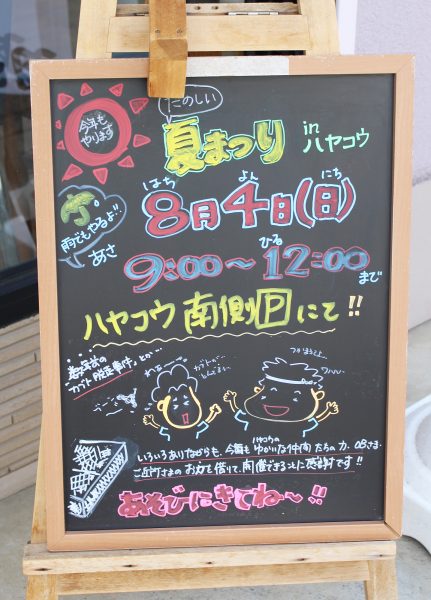 今年も
やります
たのしい
夏まつり in
ハヤコウ
はち よん にち
8月4日(日)
雨でもやるよ!!
あさ ひる
9:00〜12:00
まで
ハヤコウ 南側Ⓟにて!!
"カブト脱走事件"とか…
わぁー
カブトが…
ワハハ
いろいろありながらも、今年もハヤコウのゆかいな仲間たちの力、OBさま、
ご近所さまのお力を借りて、開催できることに感謝です!!
あそびにきてね〜!!